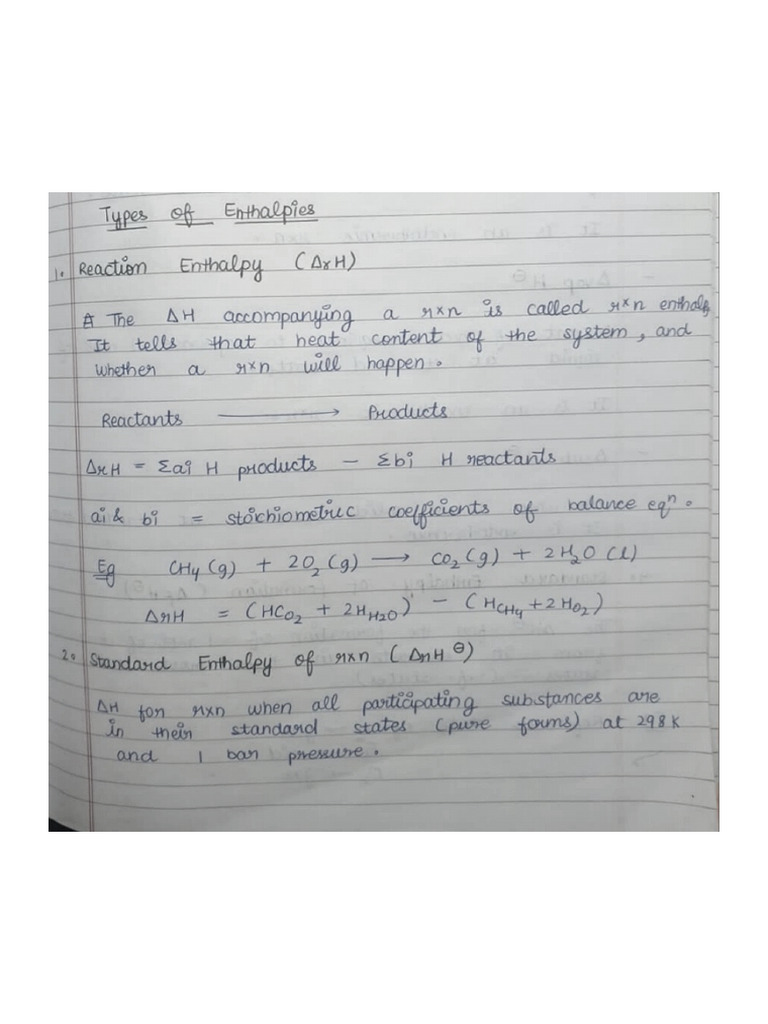 Types of Enthalpies
1. Reaction Enthalpy (ΔrH)
The ΔH accompanying a rxn is called rxn enthalp
It tells that heat content of the system, and
whether a rxn will happen.
Reactants ⟶ Products
ΔrH = Σai H products − Σbi H reactants
ai & bi = stoichiometric coefficients of balance eqⁿ.
Eg CH₄(g) + 2O₂(g) ⟶ CO₂(g) + 2H₂O(l)
ΔrH = (HCO₂ + 2HH₂O) − (HCH₄ + 2HO₂)
2. Standard Enthalpy of rxn (ΔrH⊖)
ΔH for rxn when all participating substances are
in their standard states (pure forms) at 298K
and 1 bar pressure.